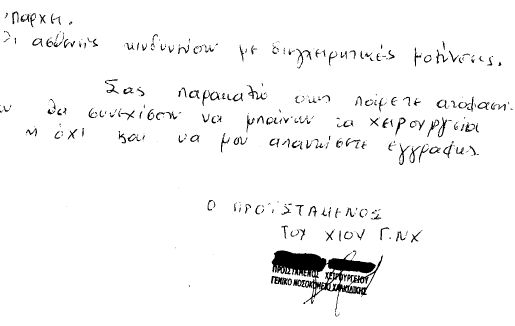 υπάρχει.
Οι ασθενής κινδυνεύουν με διεγχειρητικές μολύνσεις.
Σας παρακαλώ όπως πάρετε απόφαση
αν θα συνεχίσουν να μπαίνουν τα χειρουργεία
ή όχι και να μου απαντήσετε εγγράφως
Ο ΠΡΟΪΣΤΑΜΕΝΟΣ
ΤΟΥ ΧΙΟΥ Γ.ΝΧ
ΠΡΟΪΣΤΑΜΕΝΟΣ ΧΕΙΡΟΥΡΓΕΙΟΥ
ΓΕΝΙΚΟ ΝΟΣΟΚΟΜΕΙΟ ΧΑΛΚΙΔΙΚΗΣ